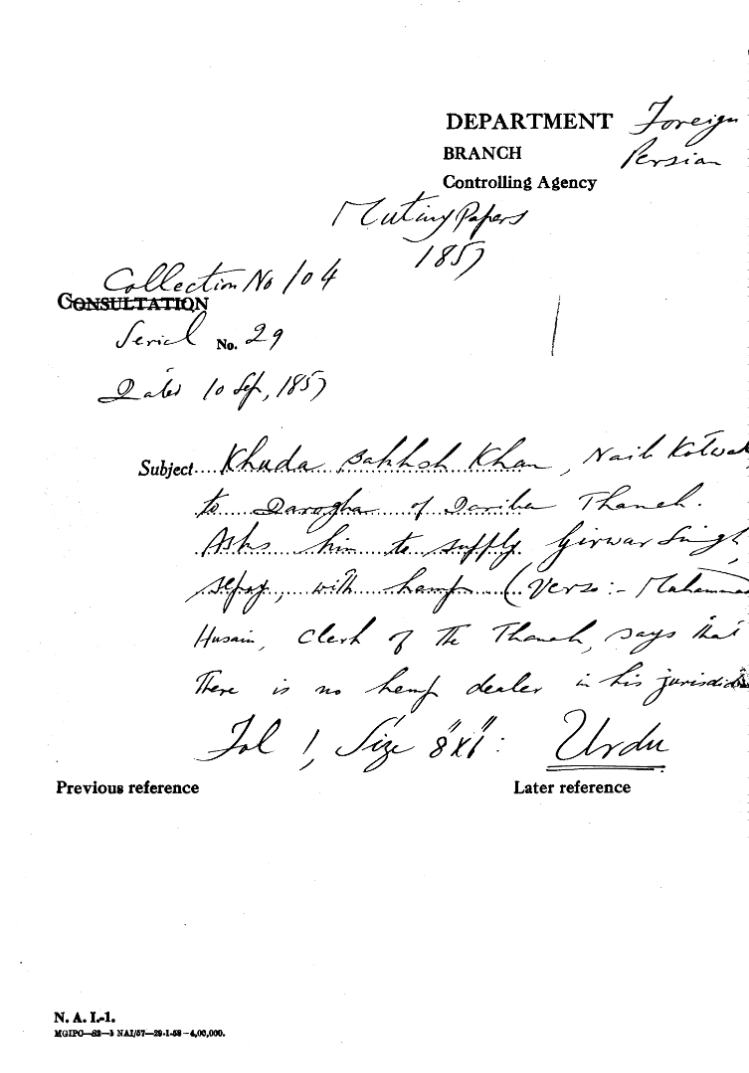 DEPARTMENT Foreign
BRANCH Persian
Controlling Agency
Mutiny Papers
1857
Collection No 104
CONSULTATION
Serial No. 29
Dated 10 Sep, 1857
Subject Khuda Bakhsh Khan, Naib Kotwal
to Darogha of Dariba Thaneh.
Asks him to supply Girwar Singh,
sepoy, with hemp (Verso:- Mohammad
Husain, Clerk of the Thaneh, says that
there is no hemp dealer in his jurisdiction
Fol 1, Size 8"x6": Urdu
Previous reference Later reference
N. A. I.-1.
MGIPC—S2—3 NAI/57—29-1-58—4,00,000.